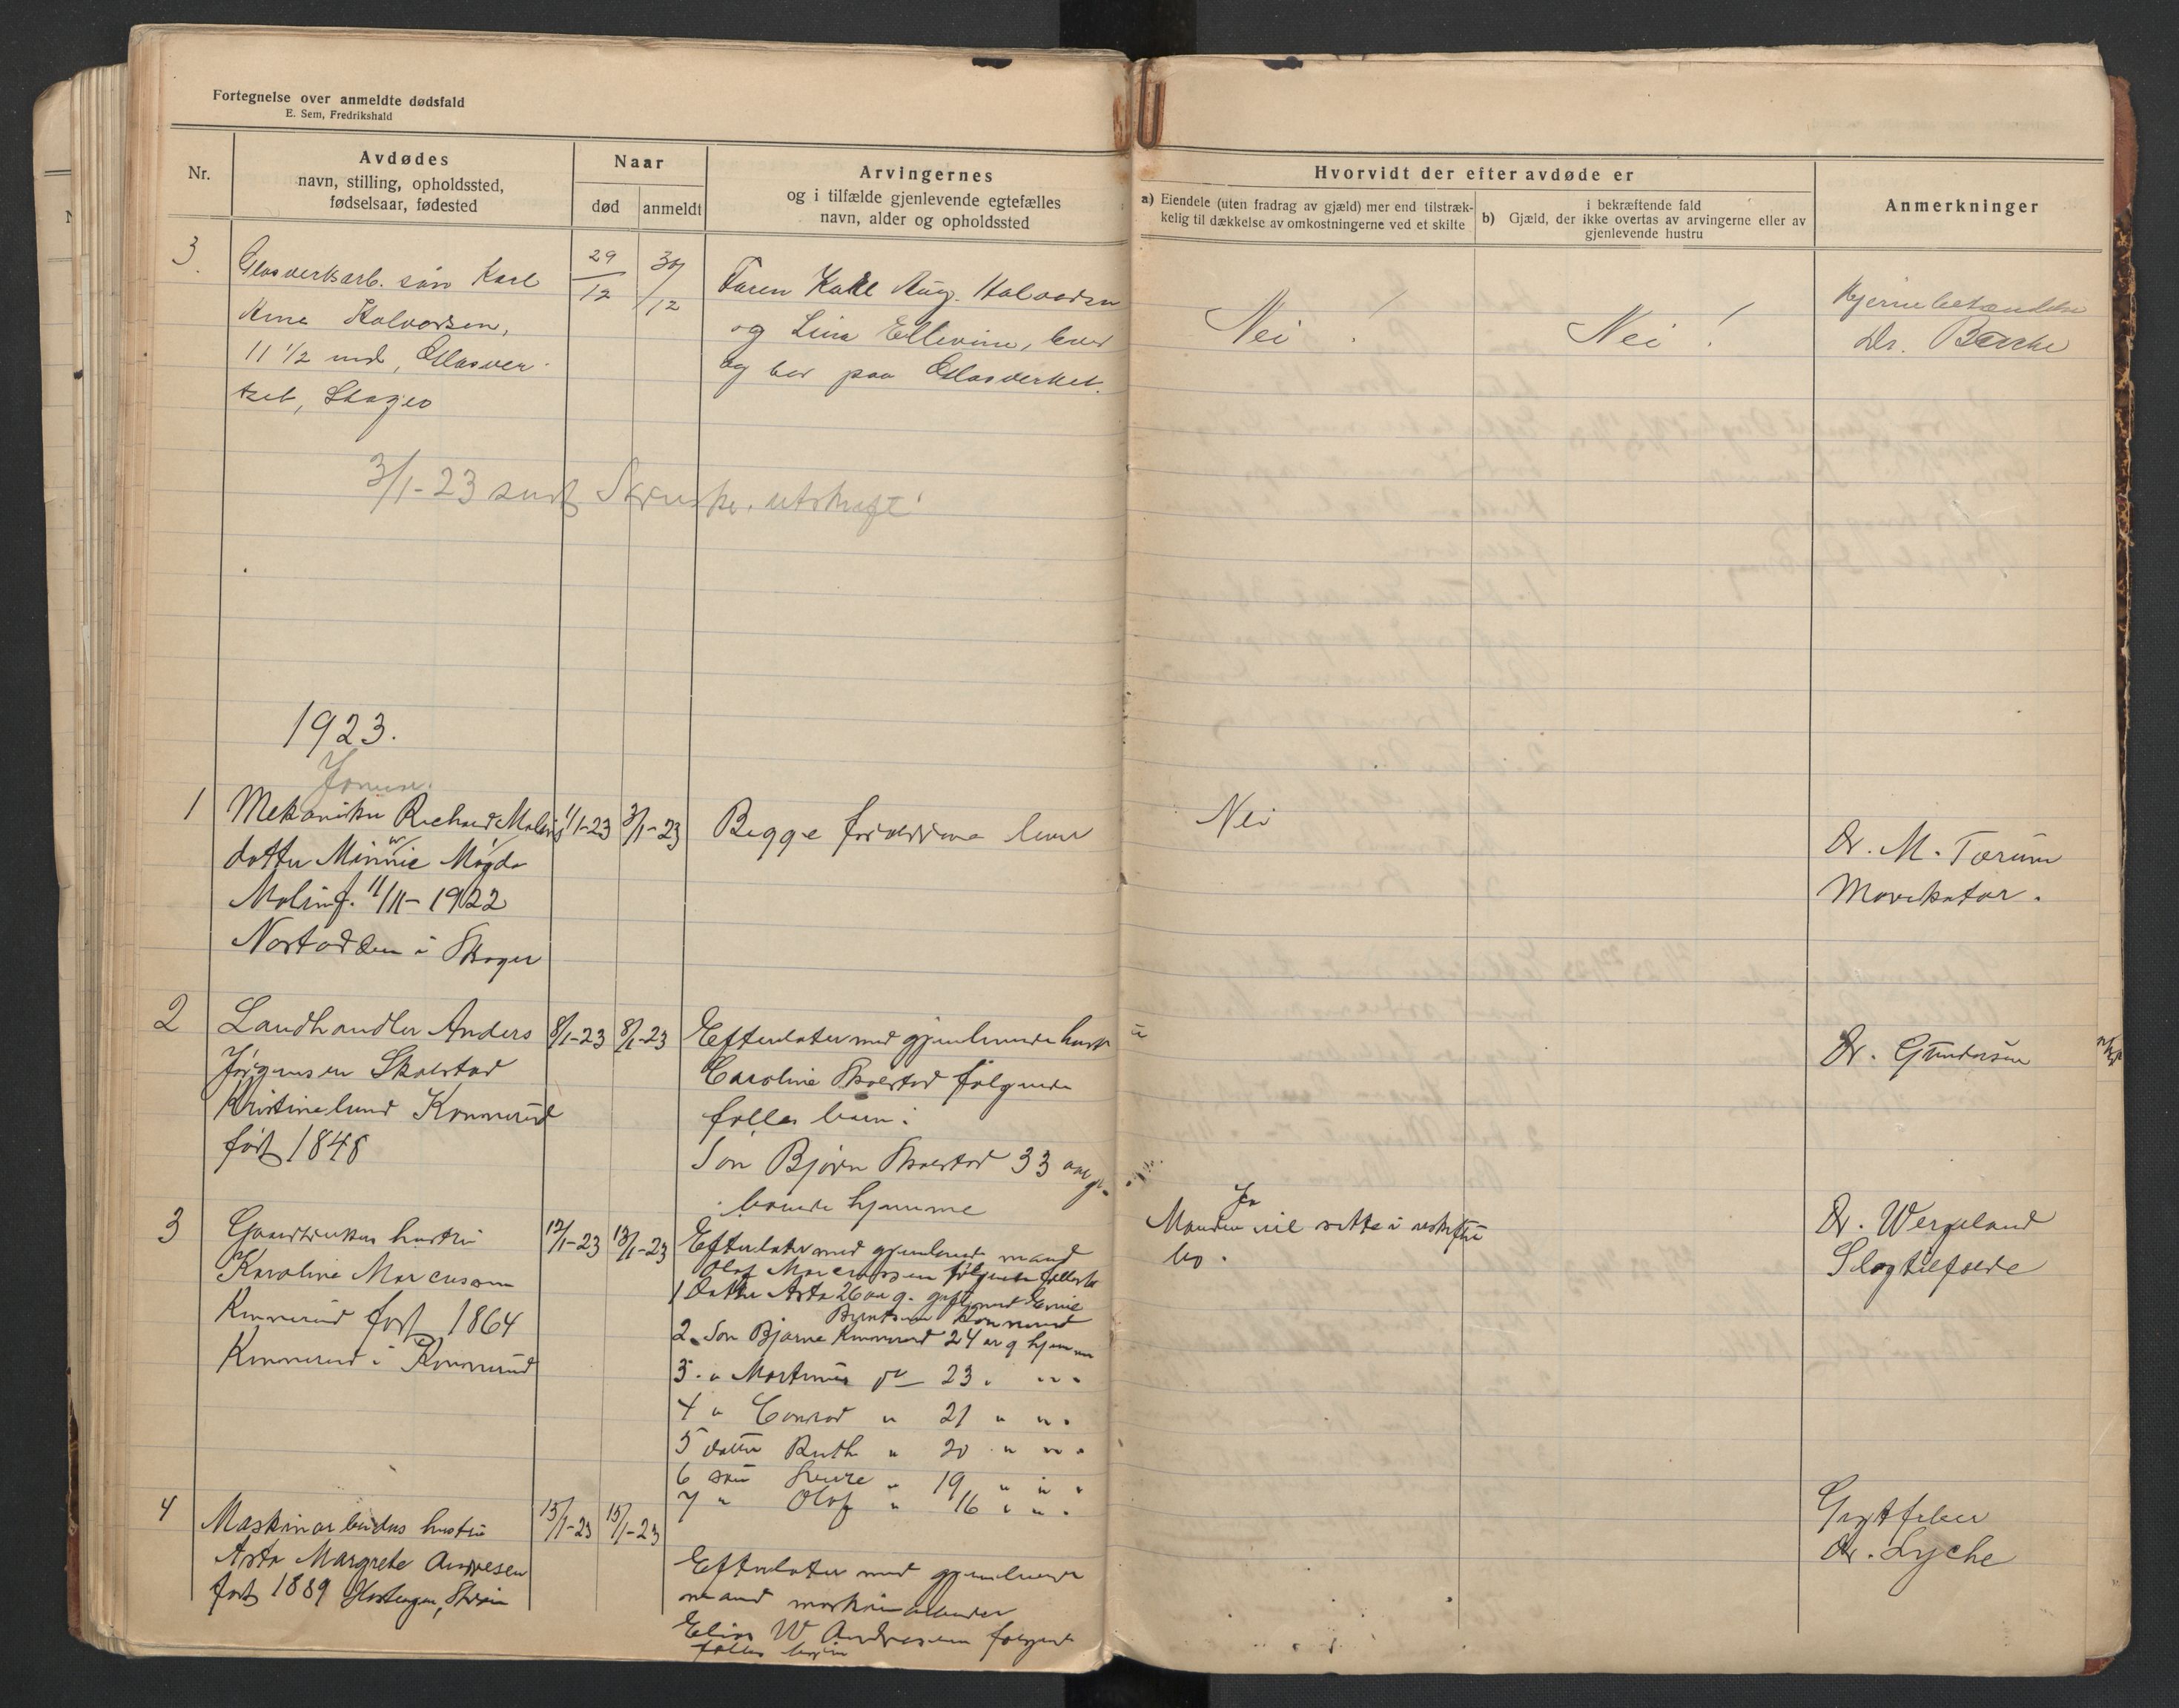 Fortegnelse over anmeldte dødsfald
E. Sem, Fredrikshald
Nr.
Avdødes
navn, stilling, opholdssted,
fødselsaar, fødested
Naar
død
anmeldt
Arvingernes
og i tilfælde gjenlevende egtefælles
navn, alder og opholdssted
Hvorvidt der efter avdøde er
a) Eiendele (uten fradrag av gjæld) mer end tilstræk-
kelig til dækkelse av omkostningerne ved et skifte
i bekræftende fald
b) Gjæld, der ikke overtas av arvingerne eller av
gjenlevende hustru
Anmerkninger
3.
Glasverksarb. søn Karl
Arne Halvorsen,
11 1/2 md, Glasver-
ket, Skoger
29/12
30/12
Faren Karl Aug. Halvorsen
og Lina Ellevine, lever
og bor paa Glasverket.
Nei !
Nei !
Hjernebetændelse
Dr. Bache
3/1-23 sendt utskrift
1923.
Januar.
1
Mekaniker Richard Malins
datter Minnie Magda
Malin f. 11/11-1922
Nøstodden i Skoger
1/1-23
3/1-23
Begge forældrene lever
Nei
Dr. M. Torum
2
Landhandler Anders
Jørgensen Skolstad
Kristinelund Konnerud
født 1848
8/1-23
8/1-23
Efterlater med gjenlevende hustru
Caroline Skolstad følgende
fælles barn:
Søn Bjørn Skolstad 33 aar g.
boende hjemme
Dr. Gundersen
3
Gaardbrukers hustru
Karoline Marcussen
Konnerud født 1864
Konnerud i Konnerud
12/1-23
13/1-23
Efterlater med gjenlevende mand
Olaf Marcussen følgende fælles b
1 Datter Asta 26 aar g. gift med Emil
Berntsen Konnerud
2. Søn Bjarne Konnerud 24 ar g hjemme
3. " Martinius do 23 " " "
4 " Conrad " 21 " " "
5 datter Ruth " 20 " " "
6 søn Sverre " 19 " " "
7 " Olaf " 16 " " "
Ja
Manden vil sitte i uskiftet
bo.
Dr. Wergeland
Slagtilfælde
4
Maskinarbeiders hustru
Asta Margrete Andresen
født 1889
15/1-23
15/1-23
Efterlater med gjenlevende
mand maskinarbeider
Elias W Andresen følgende
fælles barn
Dr. Lyche